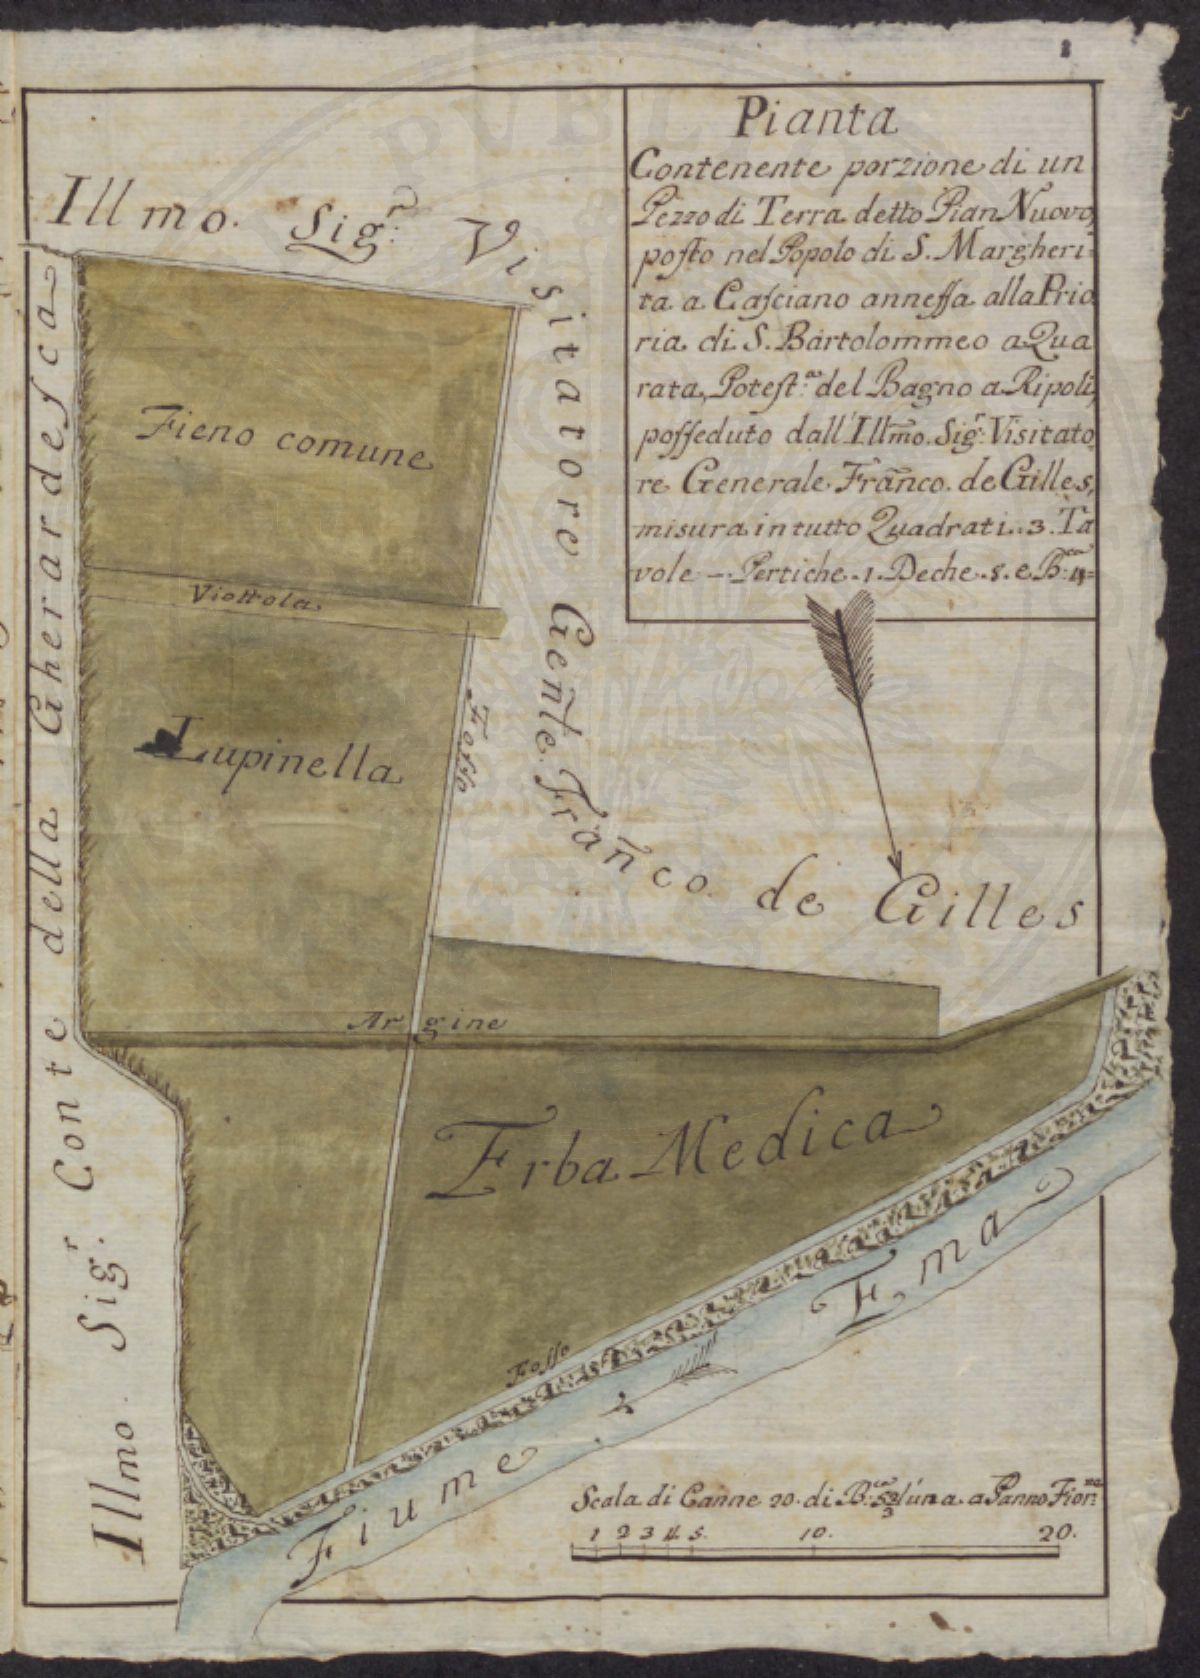 Pianta
Contenente porzione di un
Pezzo di Terra detto Pian Nuovo,
posto nel Popolo di S. Margheri-
ta a Casciano annessa alla Prio
ria di S. Bartolommeo a Qua
rata, Potest.a del Bagno a Ripoli,
posseduto dall'Illmo. Sigr. Visitato
re Generale Franco. de Gilles,
misura in tutto Quadrati..3. Ta
vole — Pertiche.1. Deche.5. e B.cca 4=
Illmo. Sigr. Visitatore Genle. Franco. de Gilles
Illmo. Sigr. Conte della Gherardesca
Fieno comune
Viottola
Lupinella
Fosso
Argine
Erba Medica
Fosso
Fiume Ema
Scala di Canne 20. di B.cca 5 2/3 l'una a Panno Fior.na
1 2 3 4 5. 10. 20.